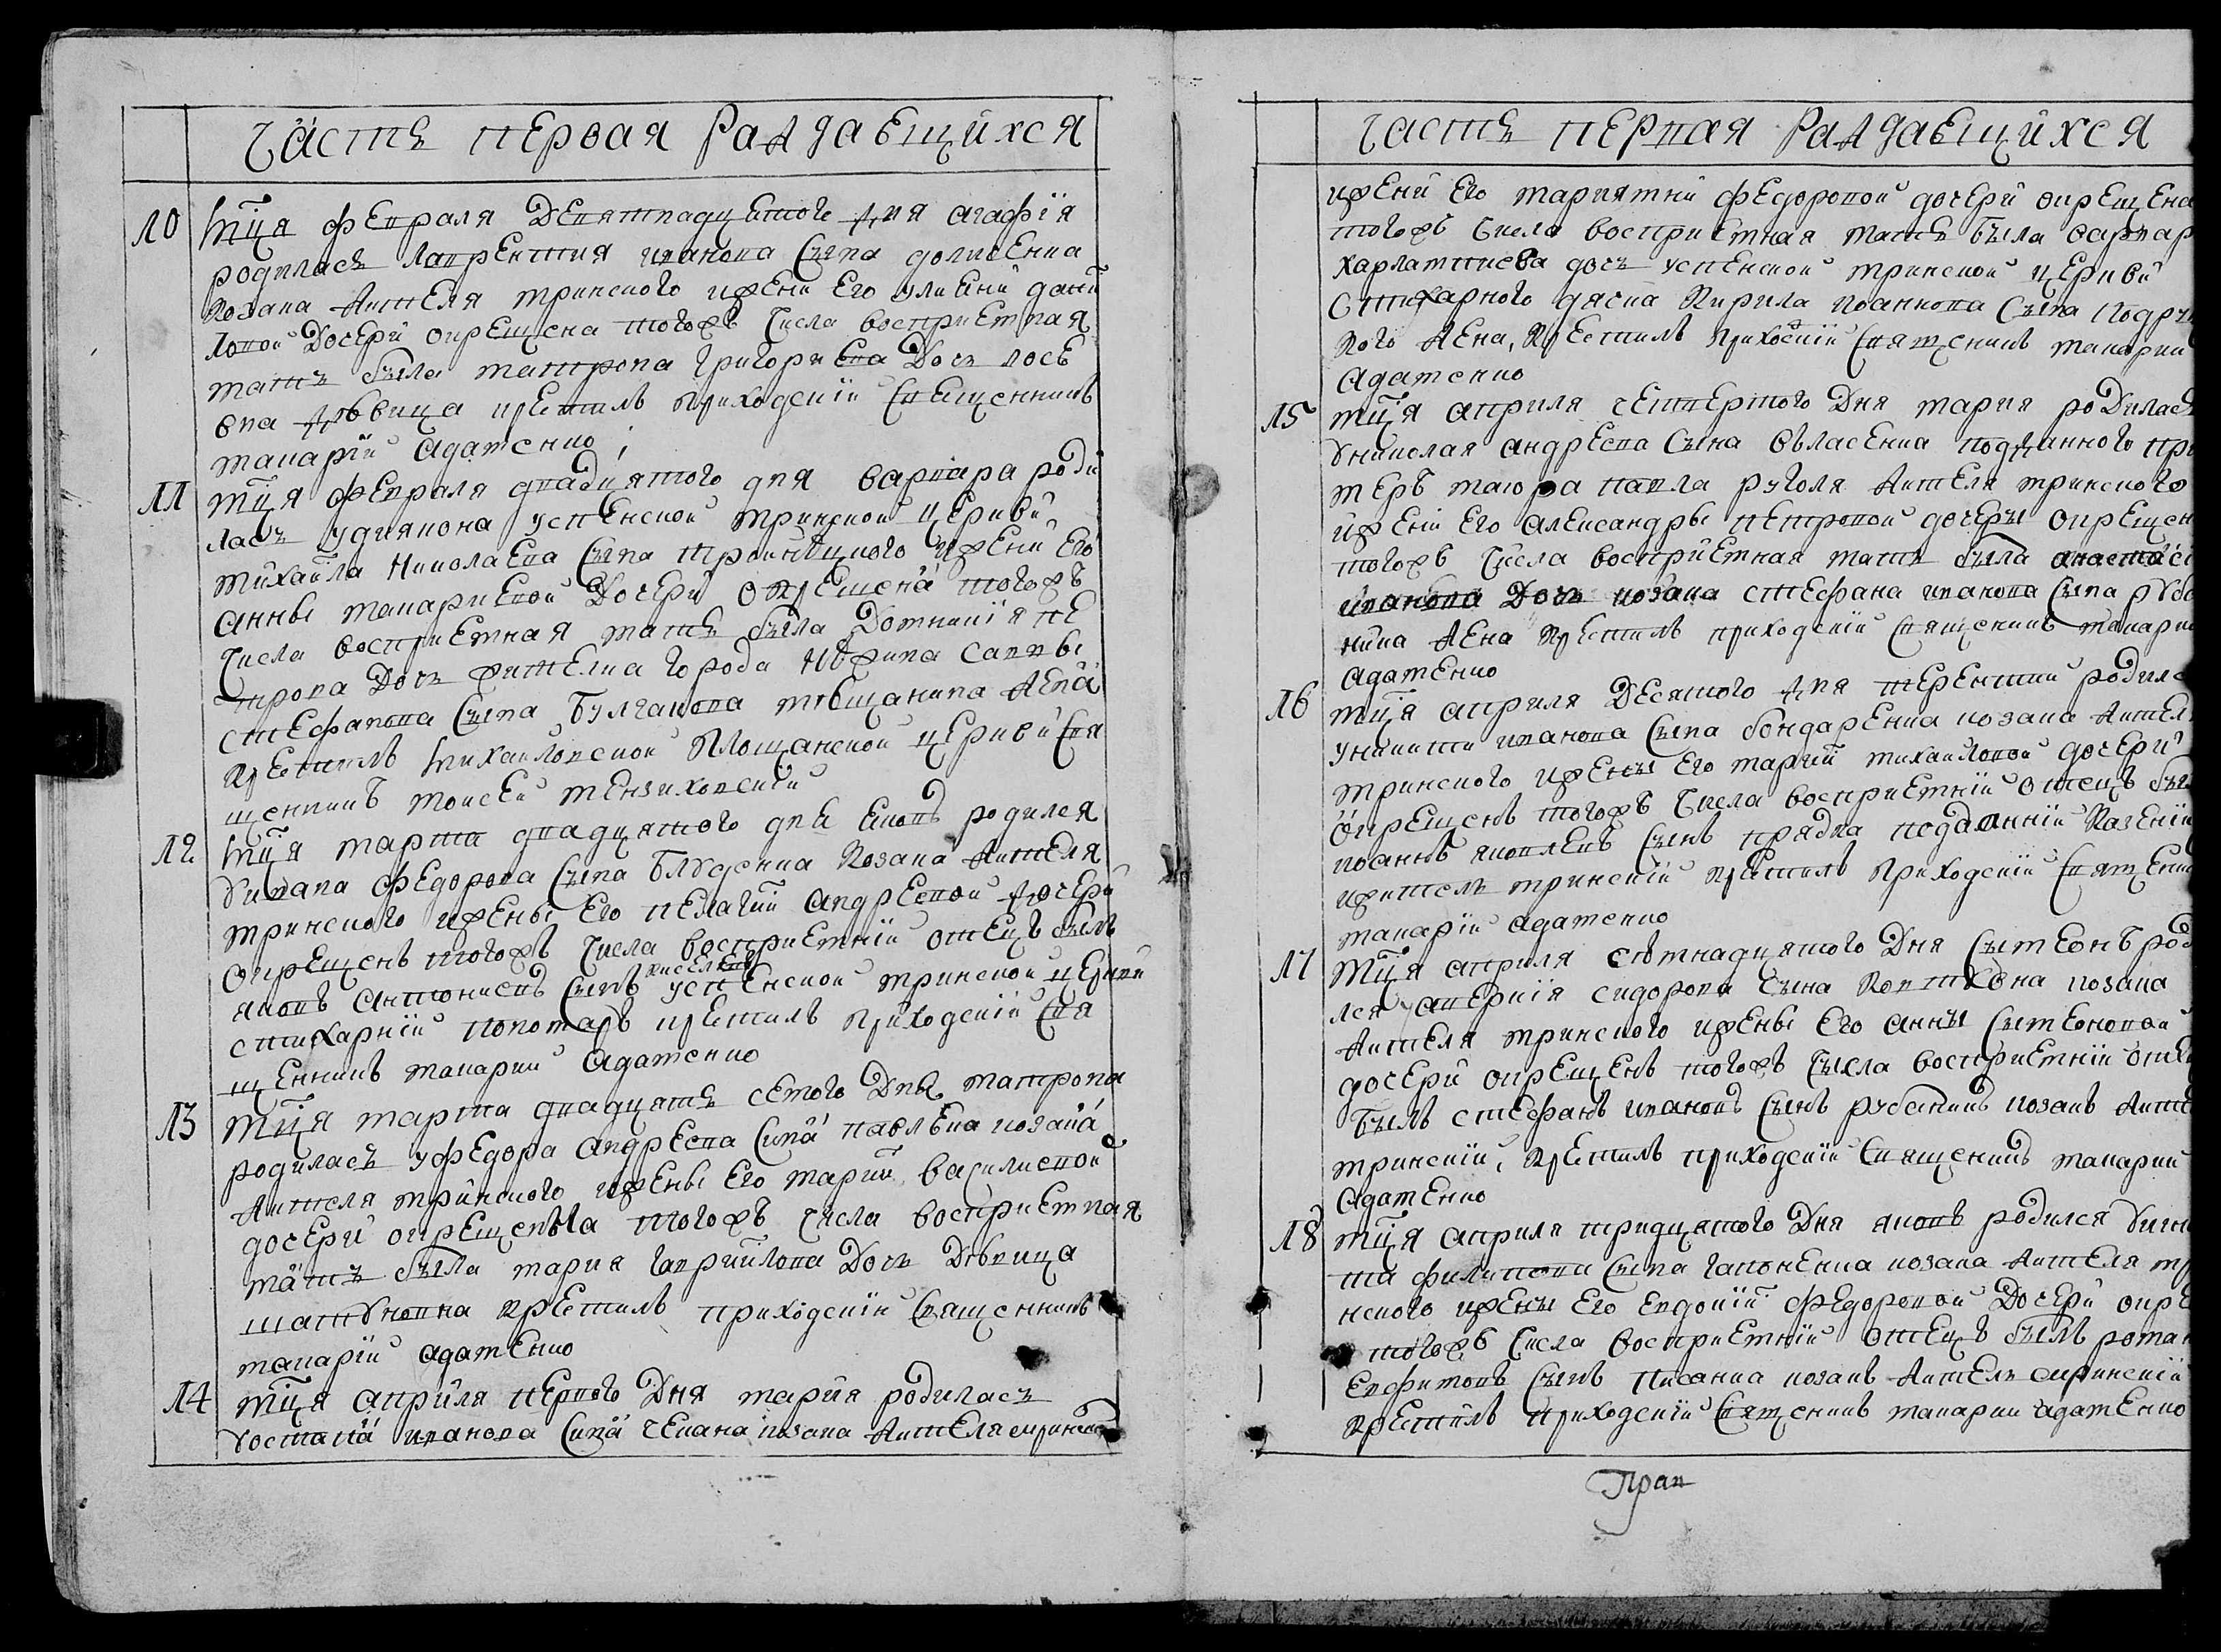 Часть первая раждаещихся
10 Мца февраля девятнадцетого дня агафїя
родилась лаврентия иванова сына долженка
козака жителя мринского и жени его улияни дани
ловой дочери окрещена тогожъ числа восприемная
мать была матрона григориева дочь лосе
вна девица крестилъ приходский свещенникъ
макарїй адаменко
11 мца февраля двадцятого дня варвара роди
лась у диякона успенской мринской церкви
михаила николаева сына троницкого и жени его
анны макариевой дочери окрещена тогожъ
числа восприемная мать была домникїя пе
трова дочь жителка города нѣжина саввы
стефанова сына булгакова мѣщанина жена
крестилъ михаиловской площанской церкви свя
щенникъ моисей
12 Мца марта двадцятого дня яковъ родился
у ивана федорова сына козака жителя
мринского и жены его пелагии андреевой дочери
окрещенъ тогожъ числа восприемній отецъ былъ
яковъ антониевъ сынъ киселевъ успенской мринской церкви
стихарній понамарь крестилъ приходскій свя
щенникъ макарий адаменко
13 мца марта двадцять семого дня матрона
родилась у федора андреева сина павленка козака
жителя мринского и жены его марии василиевой
дочери окрещенна тогожъ числа восприемная
мать была мария гавриилова дочь девица
крестилъ приходский священникъ
макарїй адаменко
14 мца априля первого дня мария родилась
у остапа иванова сина чепана козака жителя мринского
Часть первая раждаещихся
и жени его мариятни федоровой дочери окрещена
тогожъ числа восприемная мать была варвар
харлампиева дочь успенской мринской церкви
стихарного дячка кирила иоаннова сына
кого жена, крестилъ приходскїй священникъ макарий
адаменко
15 мца априля четвертого дня мария родилась
у николая андреева сына власенка подданного пре
меръ маиора павла руголя жителя мринского
и жени его александры петровой дочеры окрещен
тогожъ числа восприемная мать была анастасї
иванова дочь козака стефана иванова сына рубa
ника жена крестилъ приходскїй священникъ макари
адаменко
16 мца априля десятого дня терентий родилс
у никити иванова сына бондаренка козака жител
мринского и жены его марий михаиловой дочери
окрещенъ тогожъ числа восприемнїй отецъ бы
иоаннъ яковлевъ сынъ прядка поданнїй казеннїй
житель мринскїй крестилъ приходскїй священни
макарїй адаменко
17 Мца априля семнадцятого дня сымеонъ род
лся у аверкїя сидорова сына козака
жителя мринского и жены его анны сымеоновой
дочери окрещенъ тогожъ сысла восприемнїй отец
былъ стефанъ ивановъ сынъ рубанникъ козакъ жите
мринскїй, крестилъ приходскїй священникъ макарий
адаменко
18 мца априля тридцятого дня яковъ родился у ники
ти филипова сына гапоненка козака жителя мр
нского и жены его евдокїй федоровой дочери окре
тогожъ числа восприемнїй отецъ былъ роман
евфимовъ сынъ писанка козакъ житель смринскїй
крестилъ приходскїй священикъ макарий адаменко
Прав